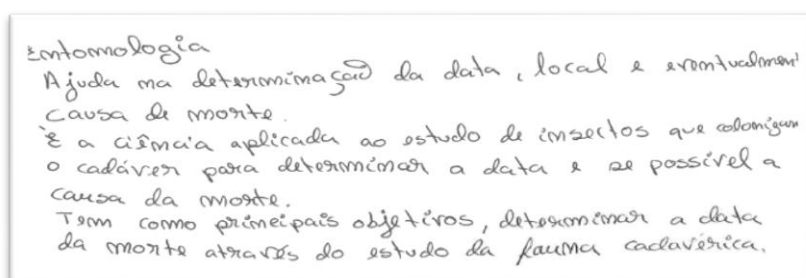 Entomologia
Ajuda na determinação da data, local e eventualmen
causa de morte.
È a ciência aplicada ao estudo de insectos que colonizam
o cadáver para determinar a data e se possível a
causa da morte.
Tem como principais objetivos, determinar a data
da morte através do estudo da fauna cadavérica.